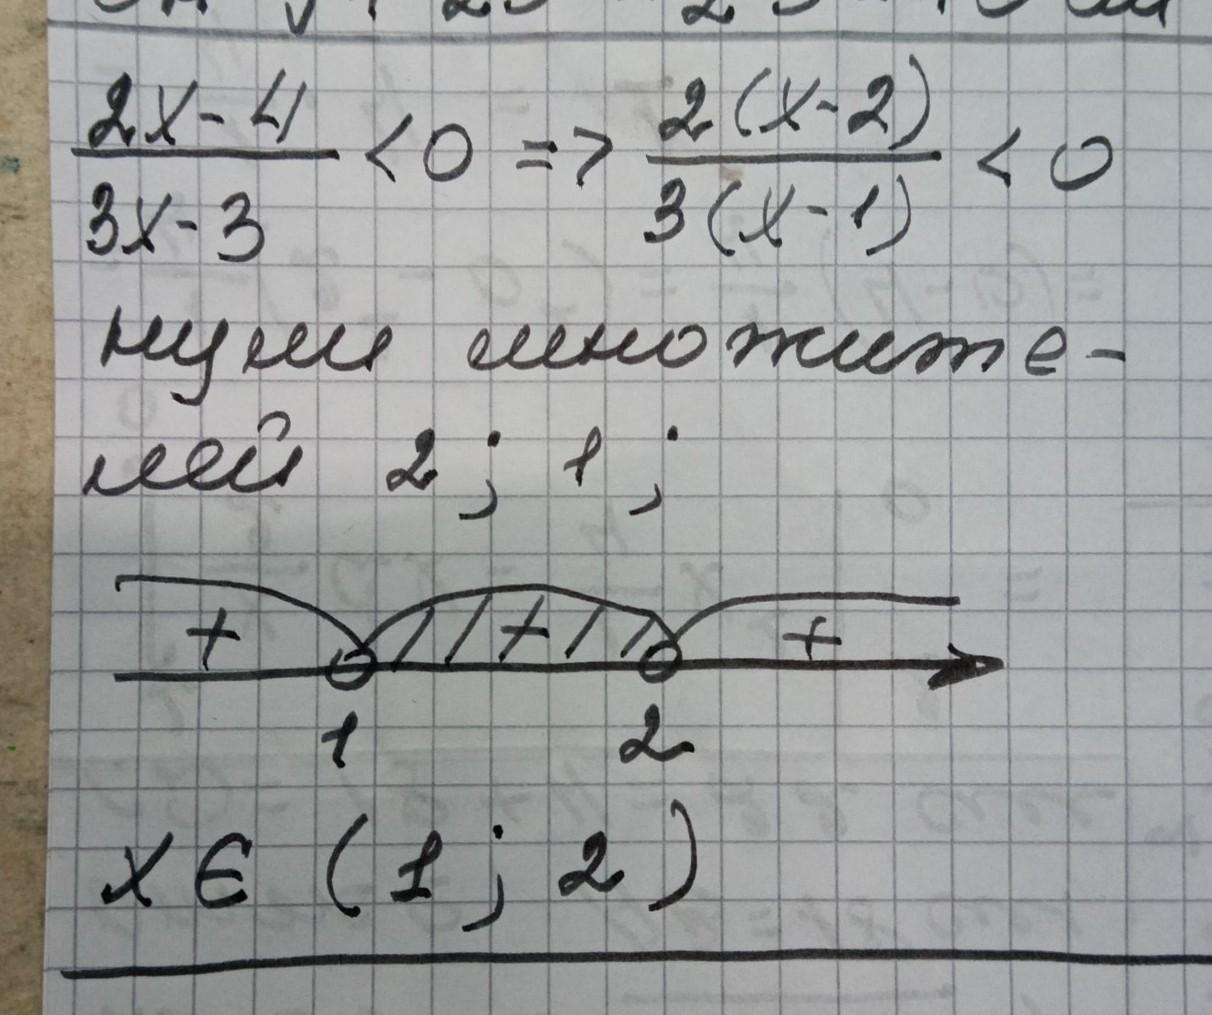 2x-4 / 3x-3 < 0 => 2(x-2) / 3(x-1) < 0
нули множите-
лей 2; 1;
+ + +
1 2
x ∈ (1; 2)